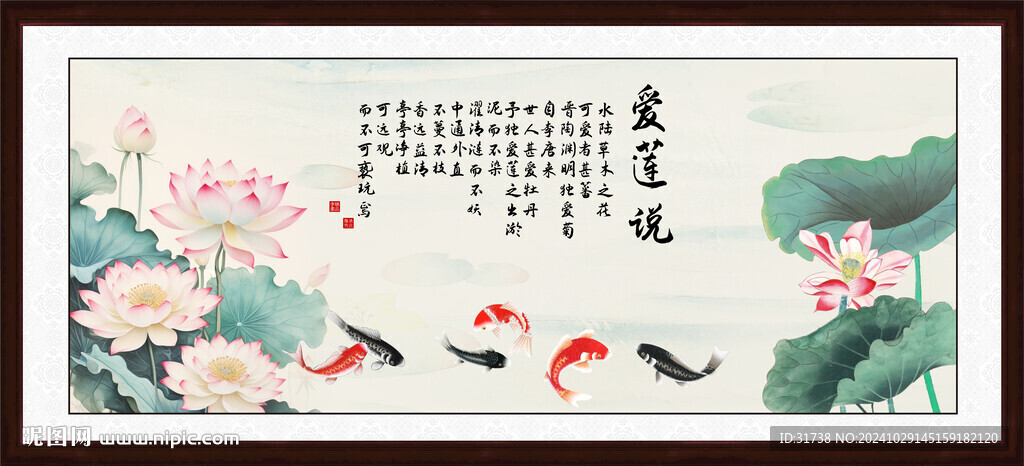 爱莲说
水陆草木之花
可爱者甚蕃
晋陶渊明独爱菊
自李唐来
世人甚爱牡丹
予独爱莲之出淤
泥而不染
濯清涟而不妖
中通外直
不蔓不枝
香远益清
亭亭净植
可远观
而不可亵玩焉
昵图网 www.nipic.com
ID:31738 NO:20241029145159182120